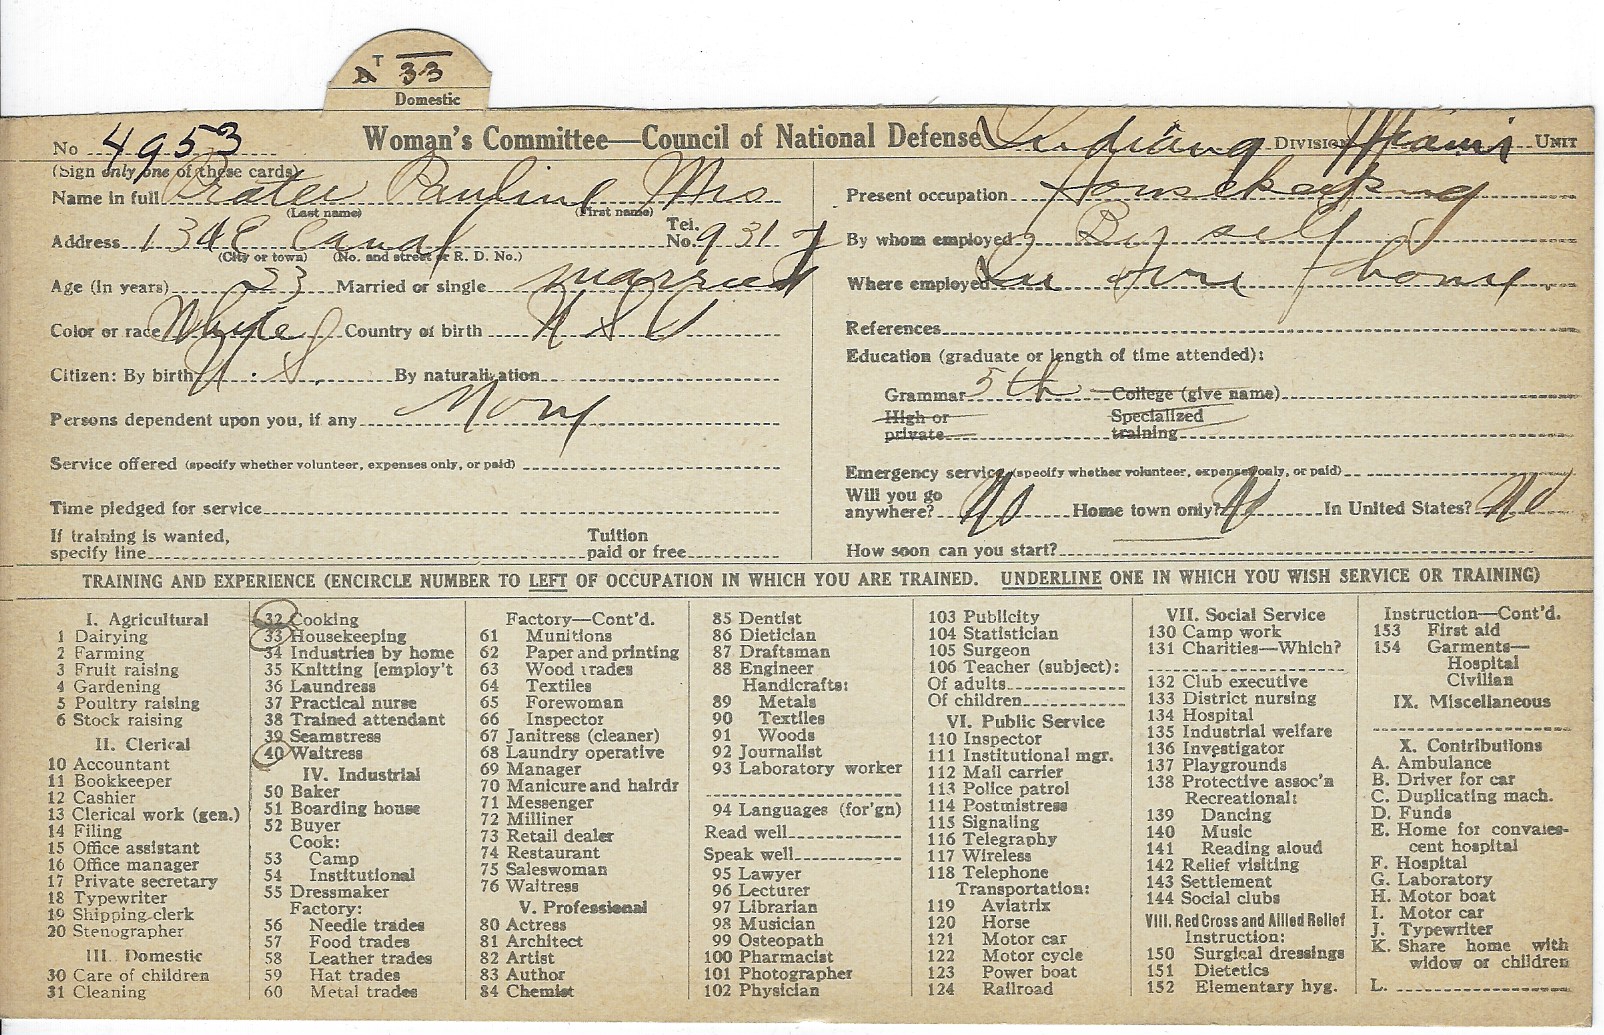 T 33
Domestic
No 4953 Woman's Committee—Council of National Defense Indiana DIVISION Miami UNIT
(Sign only one of these cards)
Name in full Prater Pauline Mrs
(Last name) (First name)
Address 134 E Canal Tel. No. 931
(City or town) (No. and street or R. D. No.)
Age (in years) 23 Married or single married
Color or race Whyte Country of birth U S
Citizen: By birth U. S. By naturalization
Persons dependent upon you, if any None
Service offered (specify whether volunteer, expenses only, or paid)
Time pledged for service
If training is wanted,
specify line
Tuition
paid or free
Present occupation Housekeeping
By whom employed By self
Where employed In own home
References
Education (graduate or length of time attended):
Grammar 5th College (give name)
High or
private
Specialized
training
Emergency service (specify whether volunteer, expenses only, or paid)
Will you go
anywhere? No Home town only? No In United States? No
How soon can you start?
TRAINING AND EXPERIENCE (ENCIRCLE NUMBER TO LEFT OF OCCUPATION IN WHICH YOU ARE TRAINED. UNDERLINE ONE IN WHICH YOU WISH SERVICE OR TRAINING)
I. Agricultural
1 Dairying
2 Farming
3 Fruit raising
4 Gardening
5 Poultry raising
6 Stock raising
II. Clerical
10 Accountant
11 Bookkeeper
12 Cashier
13 Clerical work (gen.)
14 Filing
15 Office assistant
16 Office manager
17 Private secretary
18 Typewriter
19 Shipping clerk
20 Stenographer
III. Domestic
30 Care of children
31 Cleaning
32 Cooking
33 Housekeeping
34 Industries by home
35 Knitting [employ't
36 Laundress
37 Practical nurse
38 Trained attendant
39 Seamstress
40 Waitress
IV. Industrial
50 Baker
51 Boarding house
52 Buyer
Cook:
53 Camp
54 Institutional
55 Dressmaker
Factory:
56 Needle trades
57 Food trades
58 Leather trades
59 Hat trades
60 Metal trades
Factory—Cont'd.
61 Munitions
62 Paper and printing
63 Wood trades
64 Textiles
65 Forewoman
66 Inspector
67 Janitress (cleaner)
68 Laundry operative
69 Manager
70 Manicure and hairdr
71 Messenger
72 Milliner
73 Retail dealer
74 Restaurant
75 Saleswoman
76 Waitress
V. Professional
80 Actress
81 Architect
82 Artist
83 Author
84 Chemist
85 Dentist
86 Dietician
87 Draftsman
88 Engineer
Handicrafts:
89 Metals
90 Textiles
91 Woods
92 Journalist
93 Laboratory worker
94 Languages (for'gn)
Read well
Speak well
95 Lawyer
96 Lecturer
97 Librarian
98 Musician
99 Osteopath
100 Pharmacist
101 Photographer
102 Physician
103 Publicity
104 Statistician
105 Surgeon
106 Teacher (subject):
Of adults
Of children
VI. Public Service
110 Inspector
111 Institutional mgr.
112 Mail carrier
113 Police patrol
114 Postmistress
115 Signaling
116 Telegraphy
117 Wireless
118 Telephone
Transportation:
119 Aviatrix
120 Horse
121 Motor car
122 Motor cycle
123 Power boat
124 Railroad
VII. Social Service
130 Camp work
131 Charities—Which?
132 Club executive
133 District nursing
134 Hospital
135 Industrial welfare
136 Investigator
137 Playgrounds
138 Protective assoc'n
Recreational:
139 Dancing
140 Music
141 Reading aloud
142 Relief visiting
143 Settlement
144 Social clubs
VIII. Red Cross and Allied Relief
Instruction:
150 Surgical dressings
151 Dietetics
152 Elementary hyg.
Instruction—Cont'd.
153 First aid
154 Garments—
Hospital
Civilian
IX. Miscellaneous
X. Contributions
A. Ambulance
B. Driver for car
C. Duplicating mach.
D. Funds
E. Home for convales-
cent hospital
F. Hospital
G. Laboratory
H. Motor boat
I. Motor car
J. Typewriter
K. Share home with
widow or children
L.